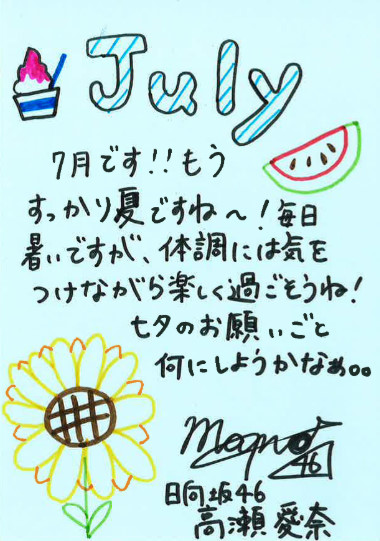 July
7月です!!もう
すっかり夏ですね〜!毎日
暑いですが、体調には気を
つけながら楽しく過ごそうね!
七夕のお願いごと
何にしようかなぁ。。
46
日向坂46
高瀬愛奈